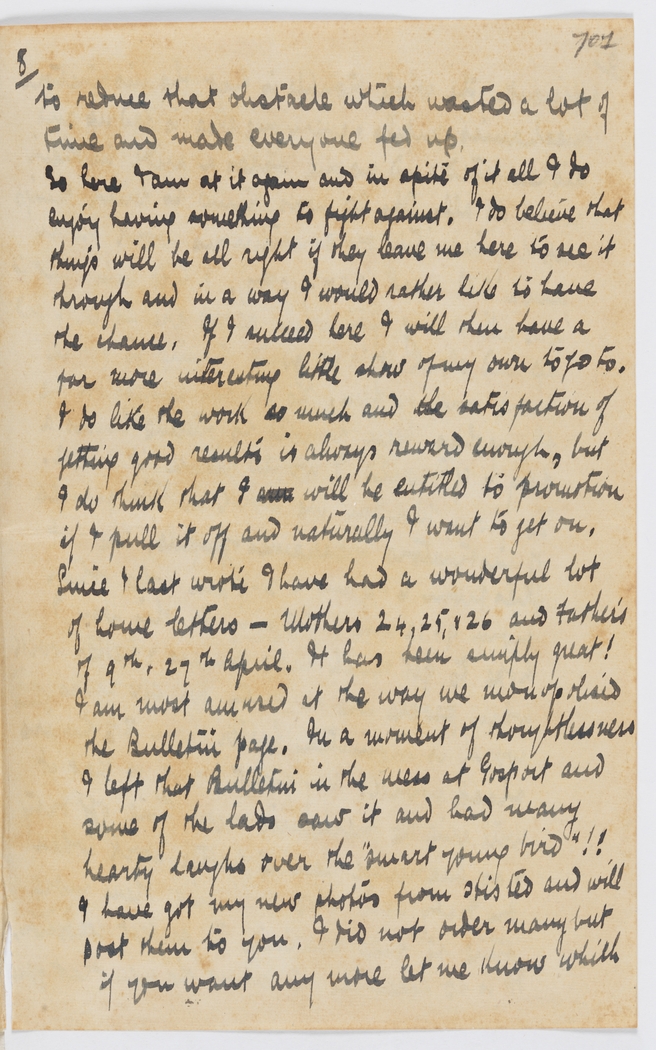 8
701
to reduce that obstacle which wasted a lot of
time and made everyone fed up.
So here I am at it again and in spite of it all I do
enjoy having something to fight against. I do believe that
things will be all right if they leave me here to see it
through and in a way I would rather like to have
the chance. If I succeed here I will then have a
far more interesting little show of my own to go to.
I do like the work so much and the satisfaction of
getting good results is always reward enough, but
I do think that I will be entitled to promotion
if I pull it off and naturally I want to get on.
Since I last wrote I have had a wonderful lot
of home letters — Mothers 24, 25, & 26 and Father's
of 9th, 27th April. It has been simply great!
I am most amused at the way we monopolised
the Bulletin page. In a moment of thoughtlessness
I left that Bulletin in the mess at Gosport and
some of the lads saw it and had many
hearty laughs over the "smart young bird"!!
I have got my new photos from and will
post them to you. I did not order many but
if you want any more let me know which